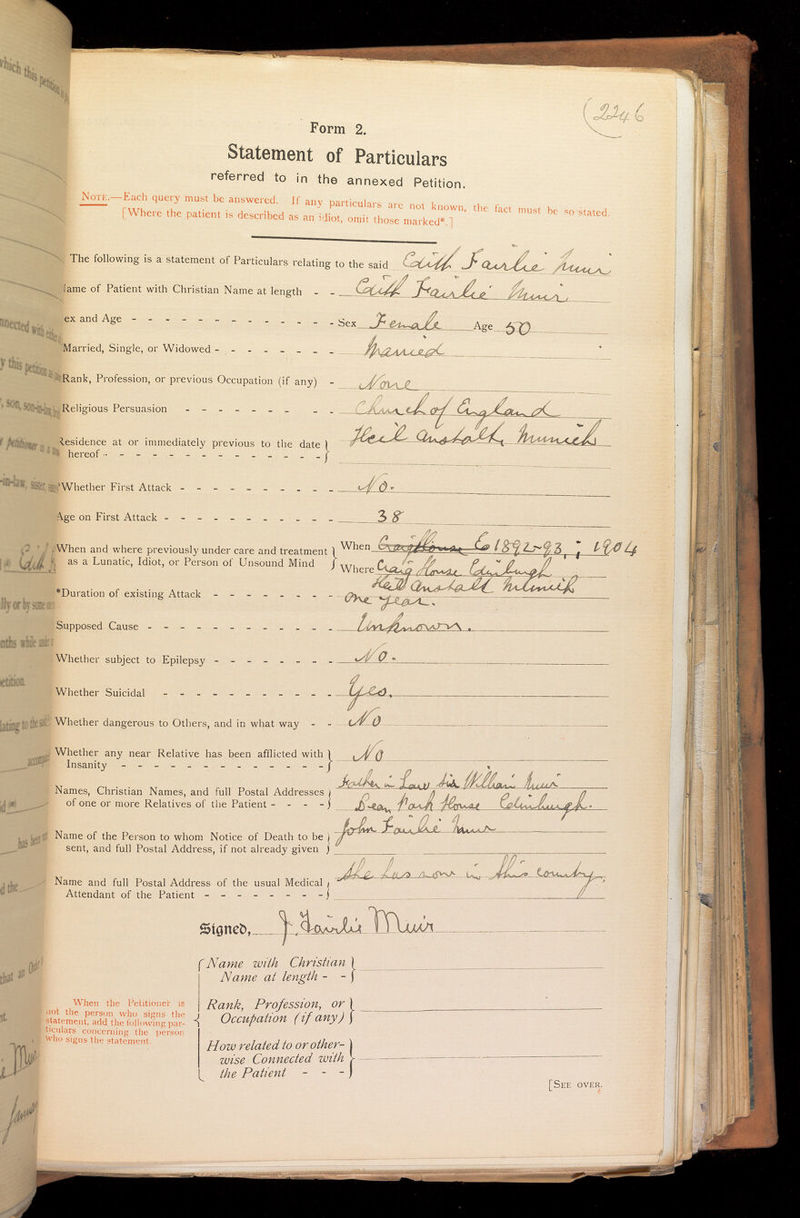 which this petition
2246
Form 2.
Statement of Particulars
referred to in the annexed Petition.
NOTE.—Each query must be answered. If any particulars are not known, the fact must be so stated.
[Where the patient is described as an idiot, omit those marked*.]
The following is a statement of Particulars relating to the said Edith Fairlie Muir
Name of Patient with Christian Name at length - - Edith Fairlie Muir
ex and Age - - - - - - - - - - - - - Sex Female Age 50
Married, Single, or Widowed - - - - - - - - Married
Rank, Profession, or previous Occupation (if any) - None
Religious Persuasion - - - - - - - - - Church of England
Residence at or immediately previous to the date hereof - - - - - - - - - - - - - - Heil Anstalt, Munich
*Whether First Attack - - - - - - - - - - No.
Age on First Attack - - - - - - - - - - - 38
When and where previously under care and treatment as a Lunatic, Idiot, or Person of Unsound Mind
When Craighouse E 1892-93, ; 1904
Where Craig House Edinburgh
Heil Anstalt Munich
*Duration of existing Attack - - - - - - - - One year.
Supposed Cause - - - - - - - - - - - - Unknown.
Whether subject to Epilepsy - - - - - - - - No.
Whether Suicidal - - - - - - - - - - - Yes.
Whether dangerous to Others, and in what way - - No
Whether any near Relative has been afflicted with Insanity - - - - - - - - - - - - - No
Names, Christian Names, and full Postal Addresses of one or more Relatives of the Patient - - - -
Father in Law Sir William Muir
Dean Park House Edinburgh.
Name of the Person to whom Notice of Death to be sent, and full Postal Address, if not already given
John Fairlie Muir
Name and full Postal Address of the usual Medical Attendant of the Patient - - - - - - - -
She has none in this country.
Signed, J. Fairlie Muir
When the Petitioner is not the person who signs the statement, add the following particulars concerning the person who signs the statement.
Name with Christian Name at length - -
Rank, Profession, or Occupation (if any)
How related to or otherwise Connected with the Patient - - -
[SEE OVER.